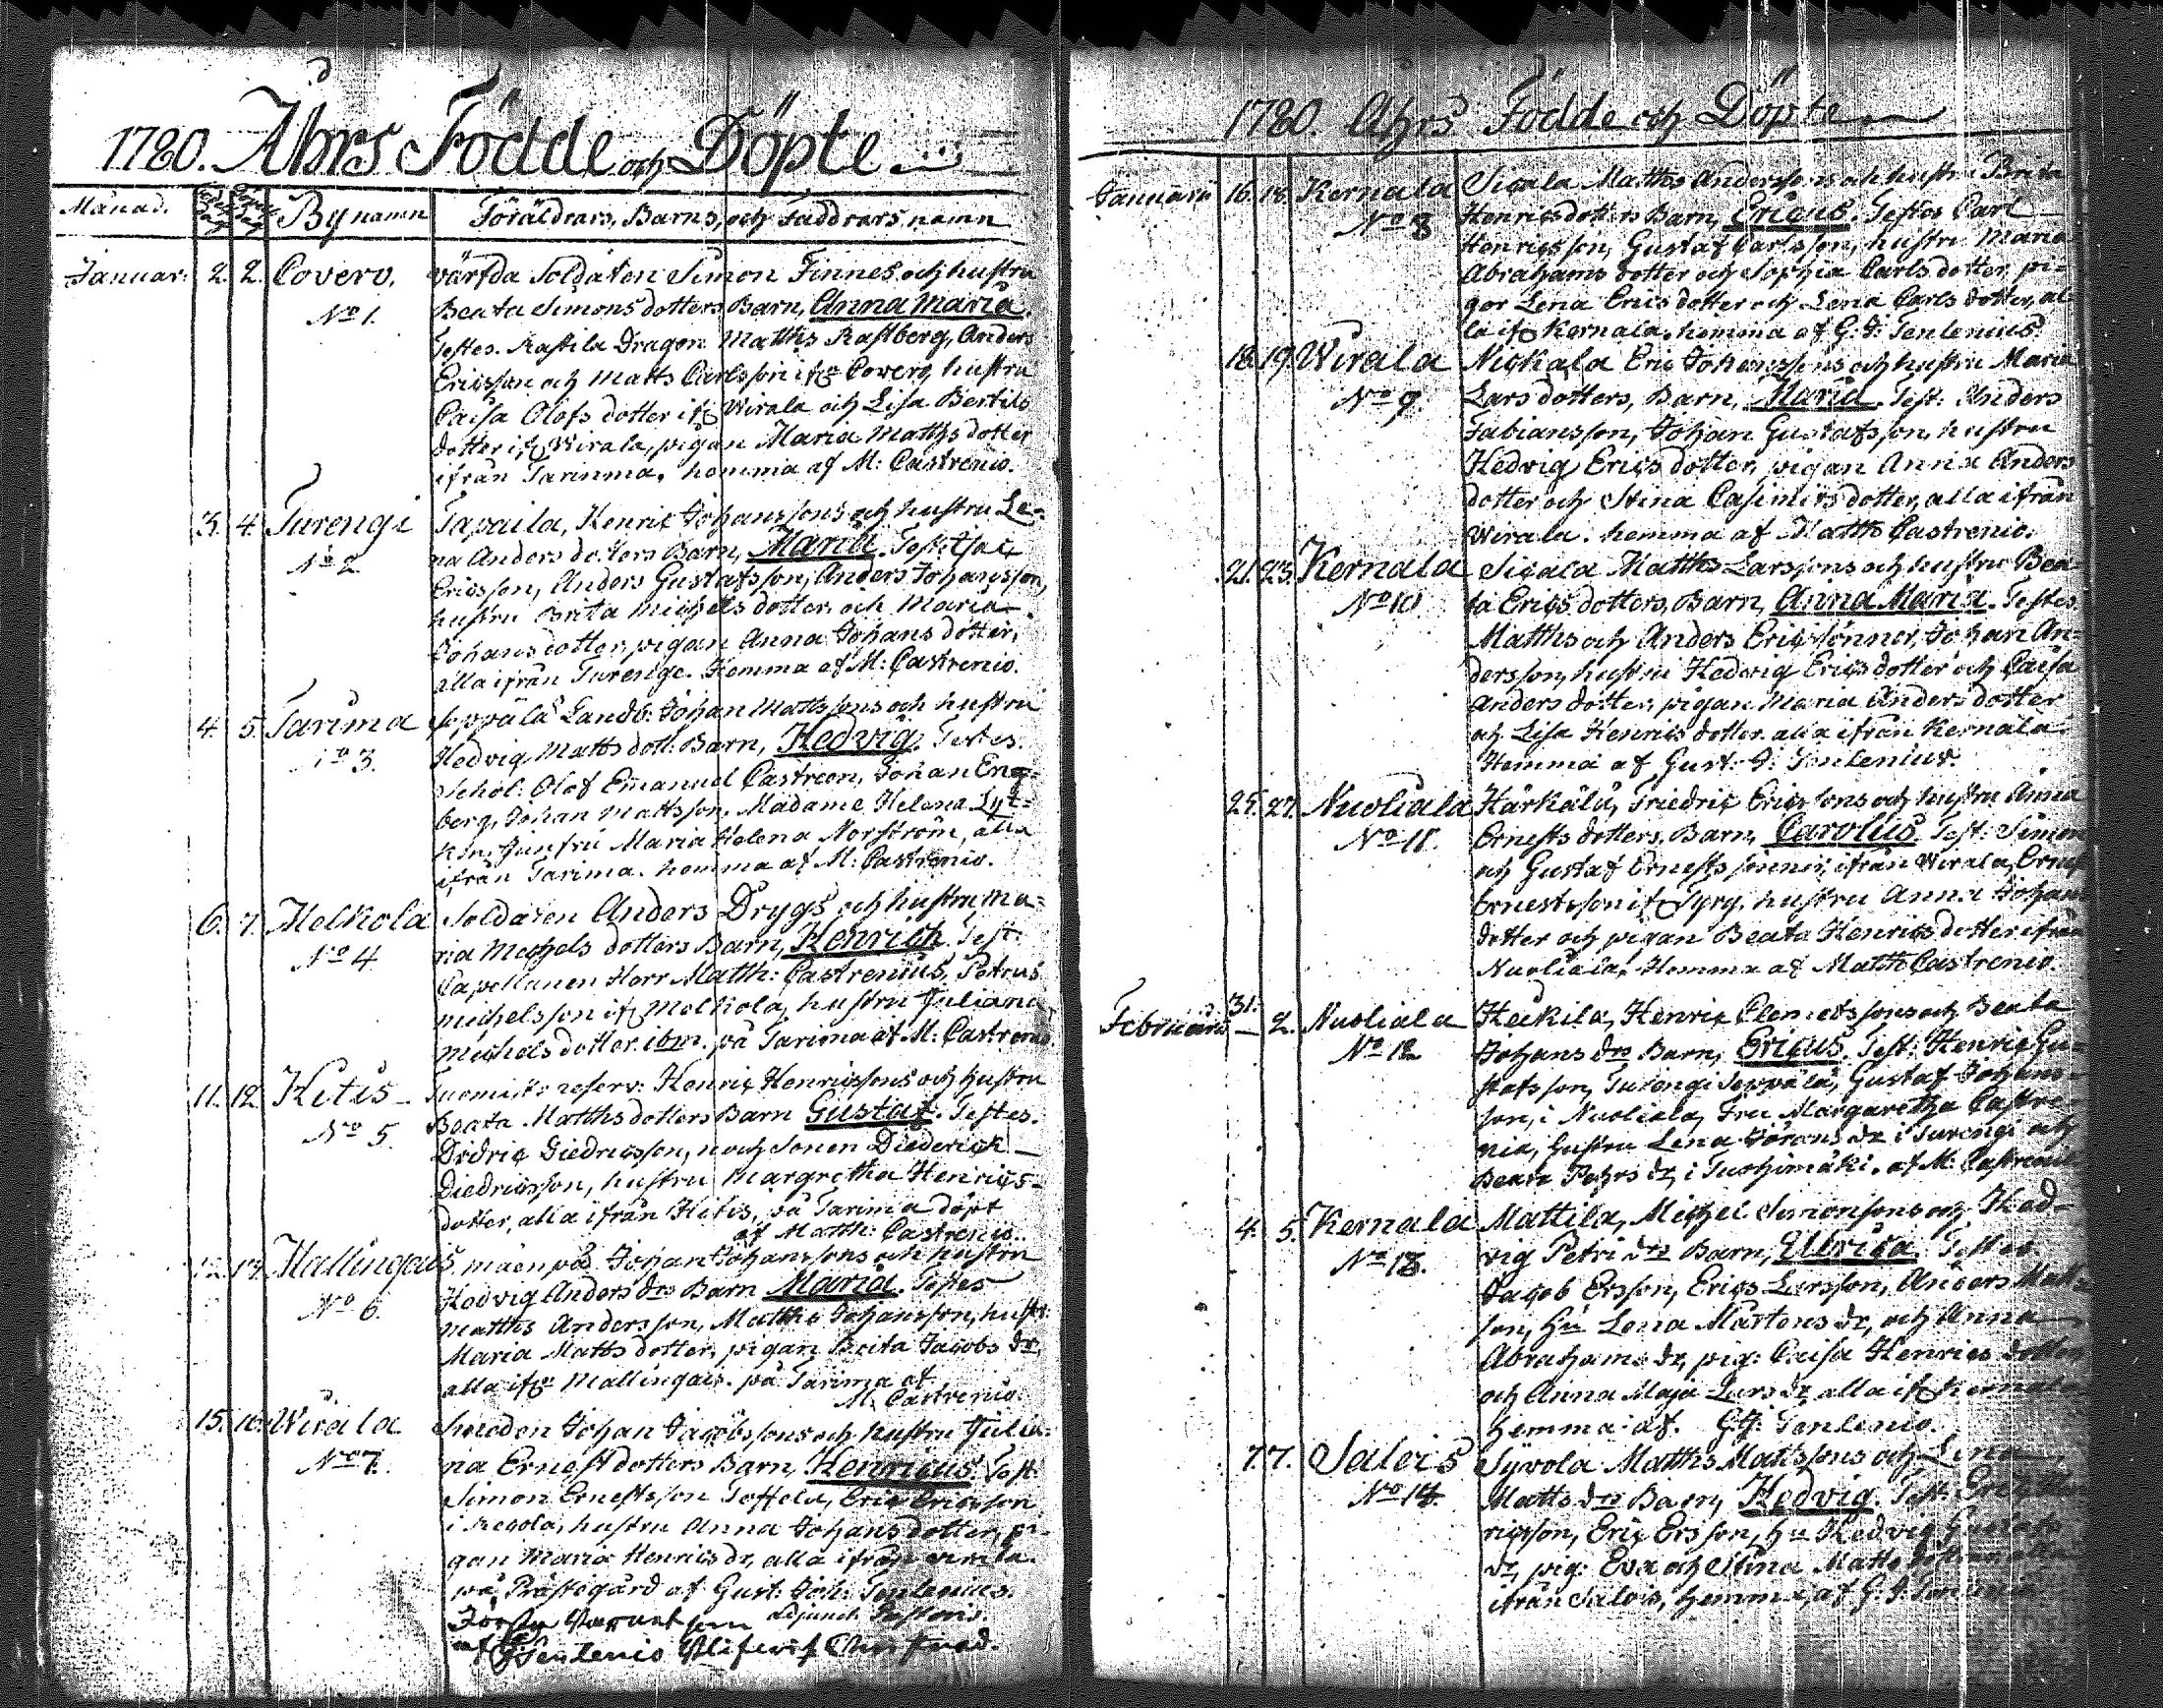 1780. Åhrs Födde och Döpte
Månad. Bynamn Föräldrars, Barns, och Faddrars namn
Januar: 2. 2. Coverο. värfda Soldaten Simon Finnes och hustru
No 1. Beata Simons dotters Barn, Anna Maria.
Testes. Rastila Dragon Matths Rastberg, Anders
Ericsson och Matts Carlsson ifr Covero, hustru
Caisa Olofs dotter ifr Wirala och Lisa Bertils
dotter ifr Wirala, pigan Maria Matths dotter
ifrån Tarinma, hemma af M: Castrenio.
3. 4. Turengi Tapaila, Henric Johanssons och hustru Le-
No 2 na Anders dotters Barn, Maria. Test: Isac
Ericsson, Anders Gustafsson, Anders Johansson,
hustru Brita Michels dotter och Maria
Johans dotter, pigan Anna Johans dotter,
alla ifrån Turenge. Hemma af M: Castrenio.
4. 5. Tarima Seppälä Landb: Johan Mattssons och hustru
No 3. Hedvig Matts dott: Barn, Hedvig. Testes.
Schol: Olof Emanuel Castreen, Johan Eng-
berg, Johan Mattsson, Madame Helena
Junfru Maria Helena Norström, alla
ifrån Tarima. hemma af M: Castrenio.
6. 7. Melkola Soldaten Anders Drygs och hustru Ma-
No 4 ria Michels dotters Barn, Henrich. Test:
Capellanen Herr Matth: Castrenius, Petrus
Michelsson ifr Melkola, hustru Juliana
Michels dotter ibm. på Tarima af M: Castrenio
11. 12 Hitis Tuomists reserv: Henric Henricssons och hustru
No 5. Beata Matths dotters Barn Gustaf. Testes.
Didric Diedricsson, och Sonen Diederich
Diedricsson, hustru Margretha Henrics-
dotter, alla ifrån Hitis, på Tarima döpt
af Matth: Castrenio.
12. 13. Mallingais Johan Johanssons och hustru
No 6. Hedvig Anders drs Barn Maria. Testes
Matths Andersson, Matths Johansson, hustr:
Maria Matts dotter, pigan Brita Jacobs dr,
alla ifr Mallingais. på Tarima af
M. Castrenio.
15. 16. Wirala Smeden Johan Jacobssons och hustru Julia-
No 7. na Ernest dotters Barn, Henricus. Test:
Simon Ernestsson Toffela, Eric Ericsson
i hustru Anna Johans dotter, pi-
gan Maria Henrics dr, alla ifrån Wirala.
på Prästegård af Gust: Joh: Tenlenius.
adjunct: Pastoris.
af GJTenlenio
1780. Åhrs Födde och Döpte
Januarii 16. 18. Kernala Sicala Matths Anderssons och hustru Brita
No 8 Henricsdotters Barn, Ericus. Testes Carl
Henricsson, Gustaf Carlsson, hustru Maria
Abrahams dotter och Sophia Carls dotter, pi-
gor Lena Erics dotter och Lena Carls dotter, al-
la ifr Kernala. hemma af G. J: Tenlenius.
18. 19. Wirala Nickala Eric Johanssons och hustru Maria
No 9 Lars dotters, Barn, Maria. Test: Anders
Fabiansson, Johan Gustafsson, hustru
Hedvig Erics dotter, pigan Anna Anders
dotter och Stina Casimirs dotter, alla ifrån
Wirala. hemma af Matth Castrenio.
21. 23. Kernala Sicala Matths Larssons och hustru Bea-
No 10 ta Erics dotters, Barn, Anna Maria. Testes
Matths och Anders Ericssönner, Johan An-
dersson, hustru Hedvig Erics dotter och Caisa
Anders dotter, pigan Maria Anders dotter
och Lisa Henrics dotter. alla ifrån Kernala.
Hemma af Gust: J: Tenlenius.
25. 27. Nuoliala Härkälä, Friedric Ericssons och hustru Anna
No 11. Ernests dotters. Barn, Carolus Test: Simon
och Gustaf Ernests sönner, ifrån Wirala, Ernst
Ernestsson ifr Syrg, hustru Anna Johans
dotter och pigan Beata Henrics dotter ifrån
Nuoliala. Hemma af Matth Castrenio.
Februarii 31. 2. Nuoliala Heikilä, Henric Clemetssons och Beata
No 12 Johans drs Barn, Ericus. Test: Henric Gu-
stafsson, Turengi Seppälä, Gustaf Johans-
son, i Nuoliala, Fru Margaretha Castre-
nia, hustru Lena Görans dr i Turengi och
Beata Pehrs dr, i Tuohimäki. af M: Castrenio
4. 5. Kernala Mattila, Michel Simonsons och Hed-
No 13. vig Petri drs Barn, Ulrica. Testes.
Jacob Ersson, Erics Larsson, Anders Mats-
son, hu Lena Mårtens dr, och Anna
Abrahams dr, pig: Caisa Henrics dotter
och Anna Maja Lars dr alla ifr Kernala
hemma af. G.J. Tenlenio.
7. 7. Salois Syvola Matths Matssons och Lena
No 14. Matts drs Barn, Hedvig. Test:
ricsson, Eric Ersson, hu Hedvig Gustafs
dr, pig: Eva och Stina Matts
ifrån Salois, hemma af G. J. Tenlenio